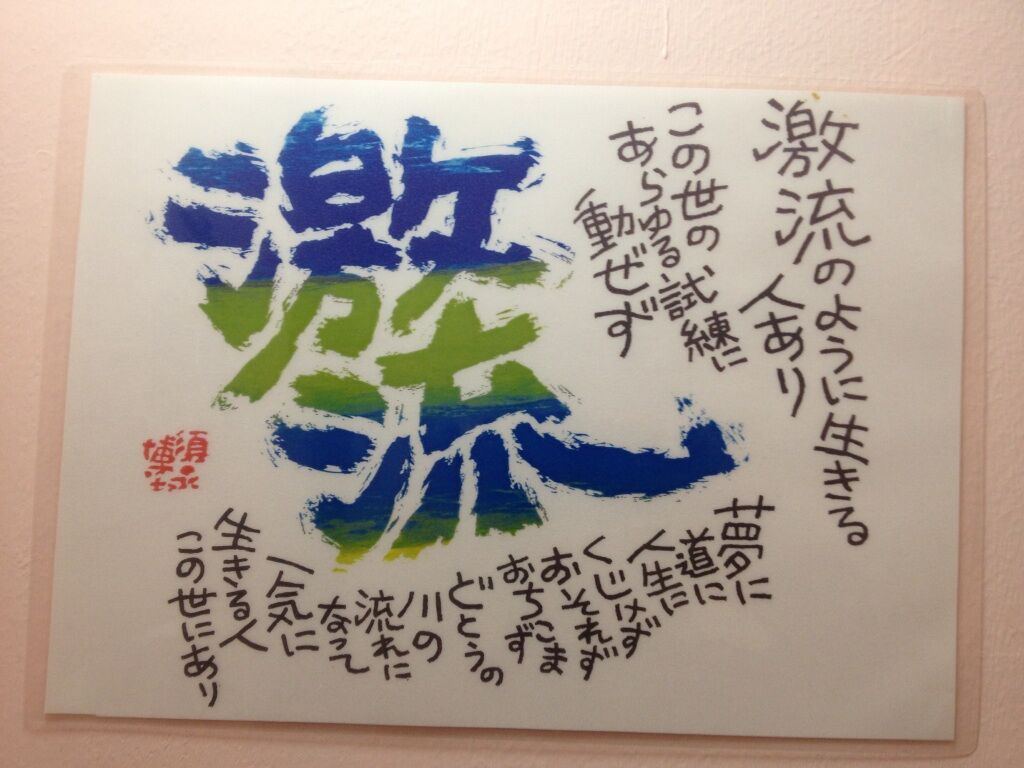 激流のように生きる
人あり
この世の試練に
あらゆる
動ぜず
激流
夢に
道に
人生に
くじけず
おそれず
おちこま
ず
どとうの
川の
流れに
なって
一気に
生きる人
この世にあり
須永
博士